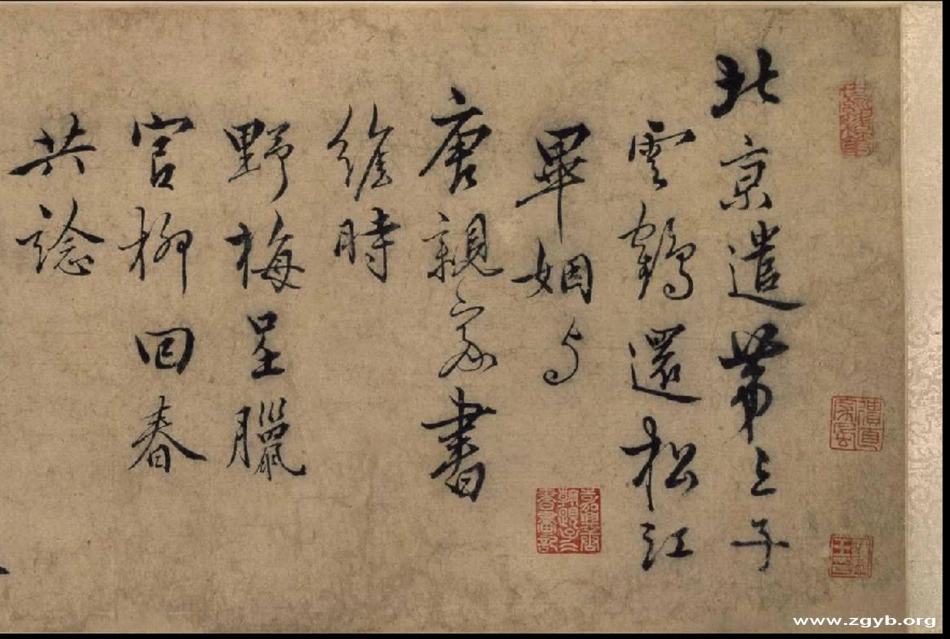 北京遣第三子
雲鶴還松江
畢姻与
唐親家書
維時
野梅呈臘
官柳回春
共諗
www.zgyb.org